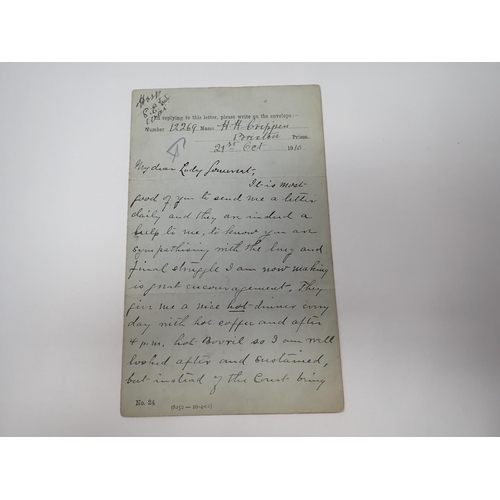 In replying to this letter, please write on the envelope:—
Number 12269 Name H H Crippen
Brixton Prison
21st Oct 1910
My dear Lady Somerset,
It is most
good of you to send me a letter
daily and they are indeed a
help to me, to know you are
sympathising with the long and
final struggle I am now making
is great encouragement. They
give me a nice hot dinner every
day with hot coffee and after
4 p.m. hot Bovril so I am well
looked after and sustained,
but instead of the Court being
No. 24